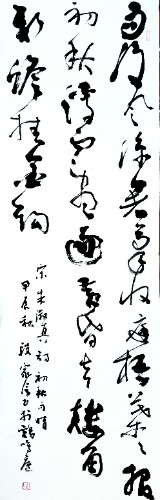 雨后风凉暑气收庭梧叶叶报
初秋浮云尽逐黄昏去楼角
新蟾挂玉钩
宋朱淑真诗初秋雨晴
甲辰秋段家